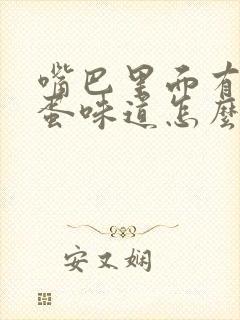 嘴巴里面有
蛋味道怎麼
安又娴